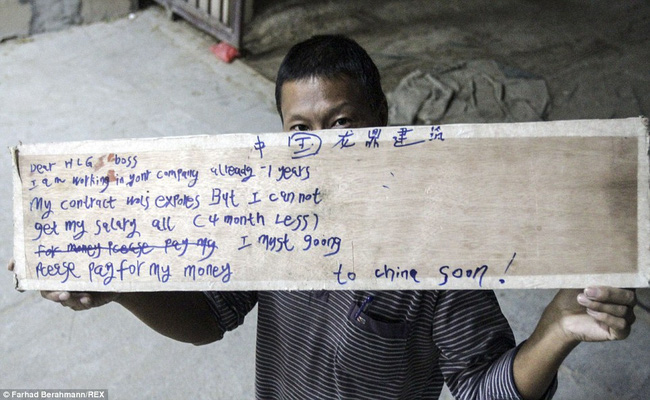 中国龙鼎建筑
Dear HLG boss
I am working in your company already -1 years
My contract wois expores But I can not
get my salary all (4 month Less)
for money Please pay my I myst goong
Peese pay for my money to china soon!
© Farhad Berahmann/REX